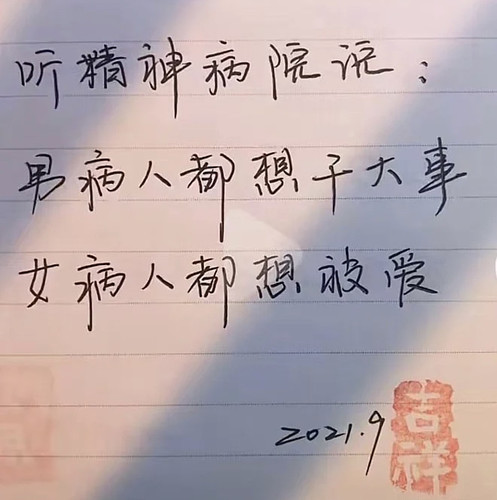 听精神病院说：
男病人都想干大事
女病人都想被爱
2021.9
吉祥